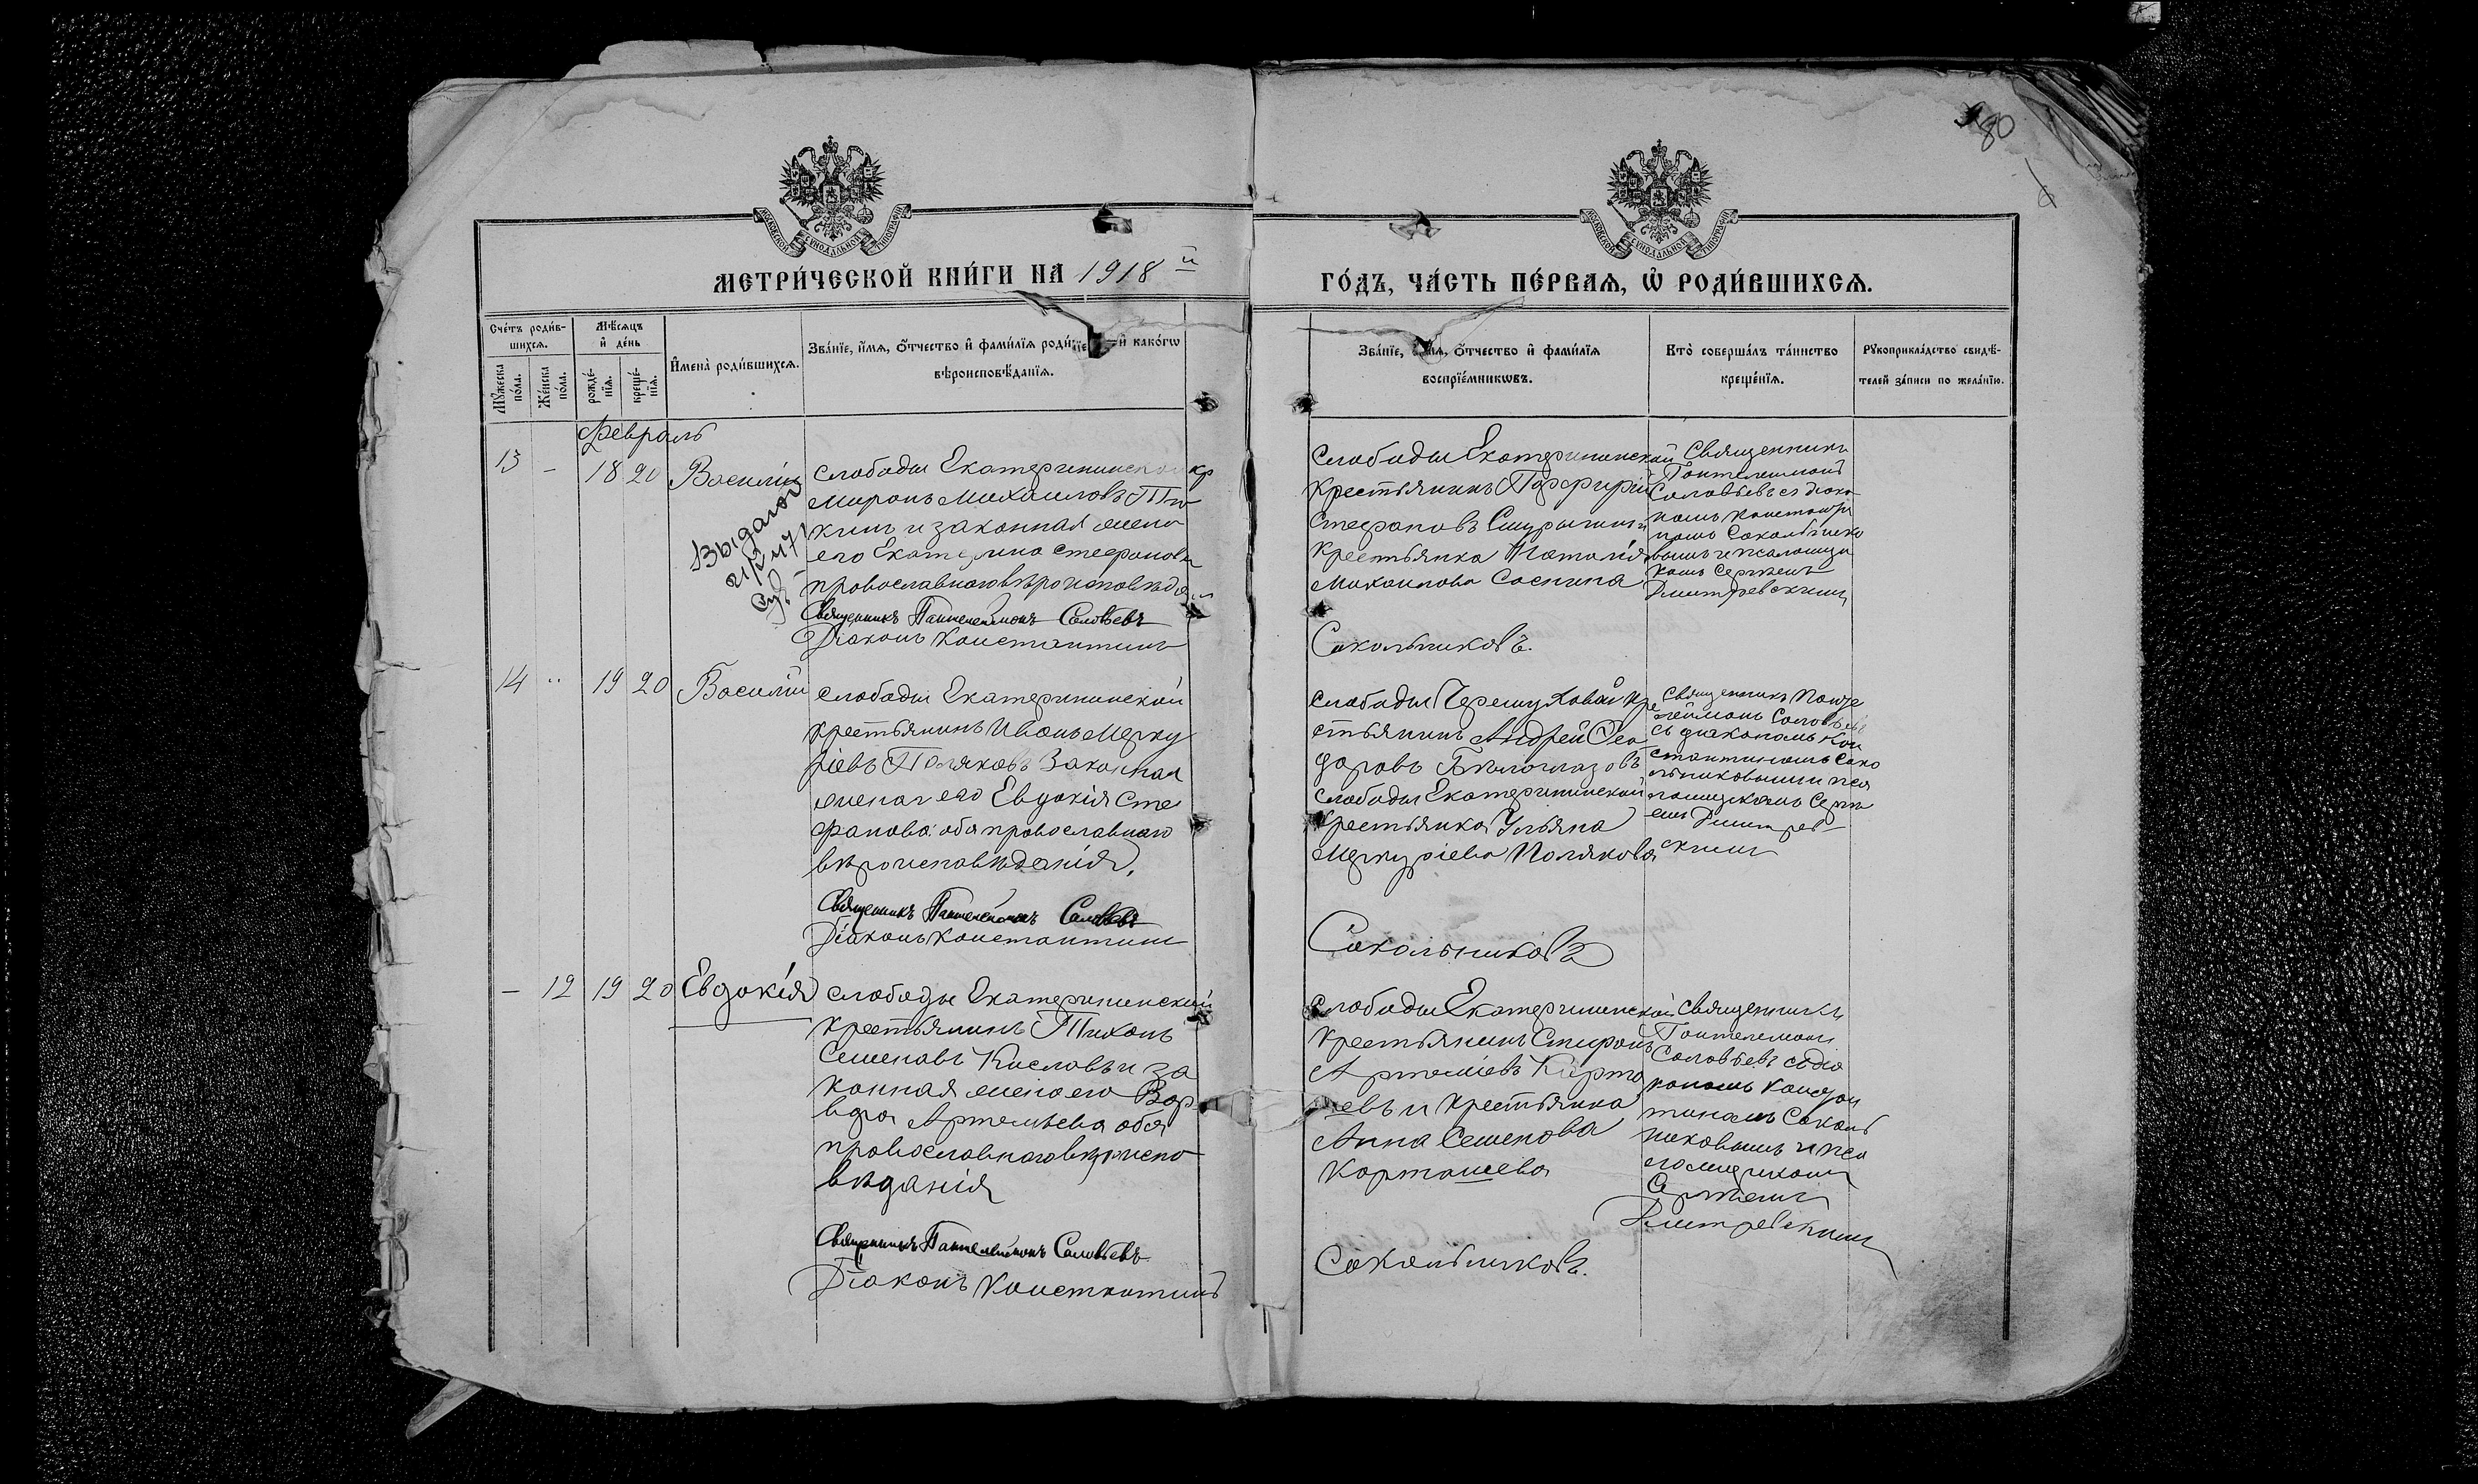 80
МОСКОВСКОЙ СУНОДАЛЬНОЙ ТИПОГРАФІИ
МОСКОВСКОЙ СУНОДАЛЬНОЙ ТИПОГРАФІИ
МЕТРИ́ЧЕСКОЙ КНИ́ГИ НА 1918 й
ГО́ДЪ, ЧА́СТЬ ПЕ́РВАѦ, Ѡ҆ РОДИ́ВШИХСѦ.
Сче́тъ роди́в-
шихсѧ.
Мꙋ́жеска
по́ла.
Же́нска
по́ла.
Мѣ́сѧцъ
и҆ де́нь
рожде́-
нїѧ.
креще́-
нїѧ.
И҆мена̀ роди́вшихсѧ.
Зва́нїе, и҆́мѧ, ѻ҆́тчество и҆ фами́лїѧ роди́ и҆ како́гѡ
вѣроисповѣ́данїѧ.
Зва́нїе, и҆́мѧ, ѻ҆́тчество и҆ фами́лїѧ
воспрїе́мникѡвъ.
Кто̀ соверша́лъ та́инство
креще́нїѧ.
Рꙋкоприкла́дство свидѣ́-
телей за́писи по жела́нїю.
Февраль
13 - 18 20 Василій
слободы Екатерининской кр
Миронъ Михаиловъ
и законная жена
его Екатерина Стефанова
православнаго вѣроисповѣдан
Священникъ Пантелеимонъ Соловьевъ
Діаконъ Константинъ
слободы Екатерининской
крестьянинъ Порфирій
Стефановъ
крестьянка Наталія
Михаилова Соснина
Сокольниковъ.
Священникъ
Пантелеимонъ
Соловьевъ съ діако
номъ Константи
номъ Сокольнико
вымъ и псаломщи
комъ Сергѣемъ
Дмитревскимъ
14 " 19 20 Василій
слободы Екатерининской
крестьянинъ Иванъ Мерку
ріевъ Поляковъ Законная
жена его Евдокія Сте
фанова оба православнаго
вѣроисповѣданія.
Священникъ Пантелеимонъ Соловьевъ
Діаконъ Константинъ
слободы Черемуховой кре
стьянинъ Андрей Ѳео
доровъ Бѣлоглазовъ
слободы Екатерининской
крестьянка Ульяна
Меркуріева Полякова
Сокольниковъ
Священникъ Панте
леймонъ Соловьевъ
съ діакономъ Кон
стантиномъ Соко
льниковымъ и пса
ломщикомъ Сергѣ
емъ Дмитрев
скимъ
- 12 19 20 Евдокія
слободы Екатерининской
крестьянинъ Тихонъ
Семеновъ Кисловъ и за
конная жена его Вар
вара Артемьева оба
православнаго вѣроиспо
вѣданія
Священникъ Пантелеимонъ Соловьевъ
Діаконъ Константинъ
слободы Екатерининской
крестьянинъ Спиронъ
Артеміевъ Карта
шевъ и крестьянка
Анна Семенова
Карташева
Сокольниковъ.
Священникъ
Пантелеимонъ
Соловьевъ съ діа
кономъ Констан
тиномъ Соколь
никовымъ и пса
ломщикомъ
Сергѣемъ
Дмитревскимъ